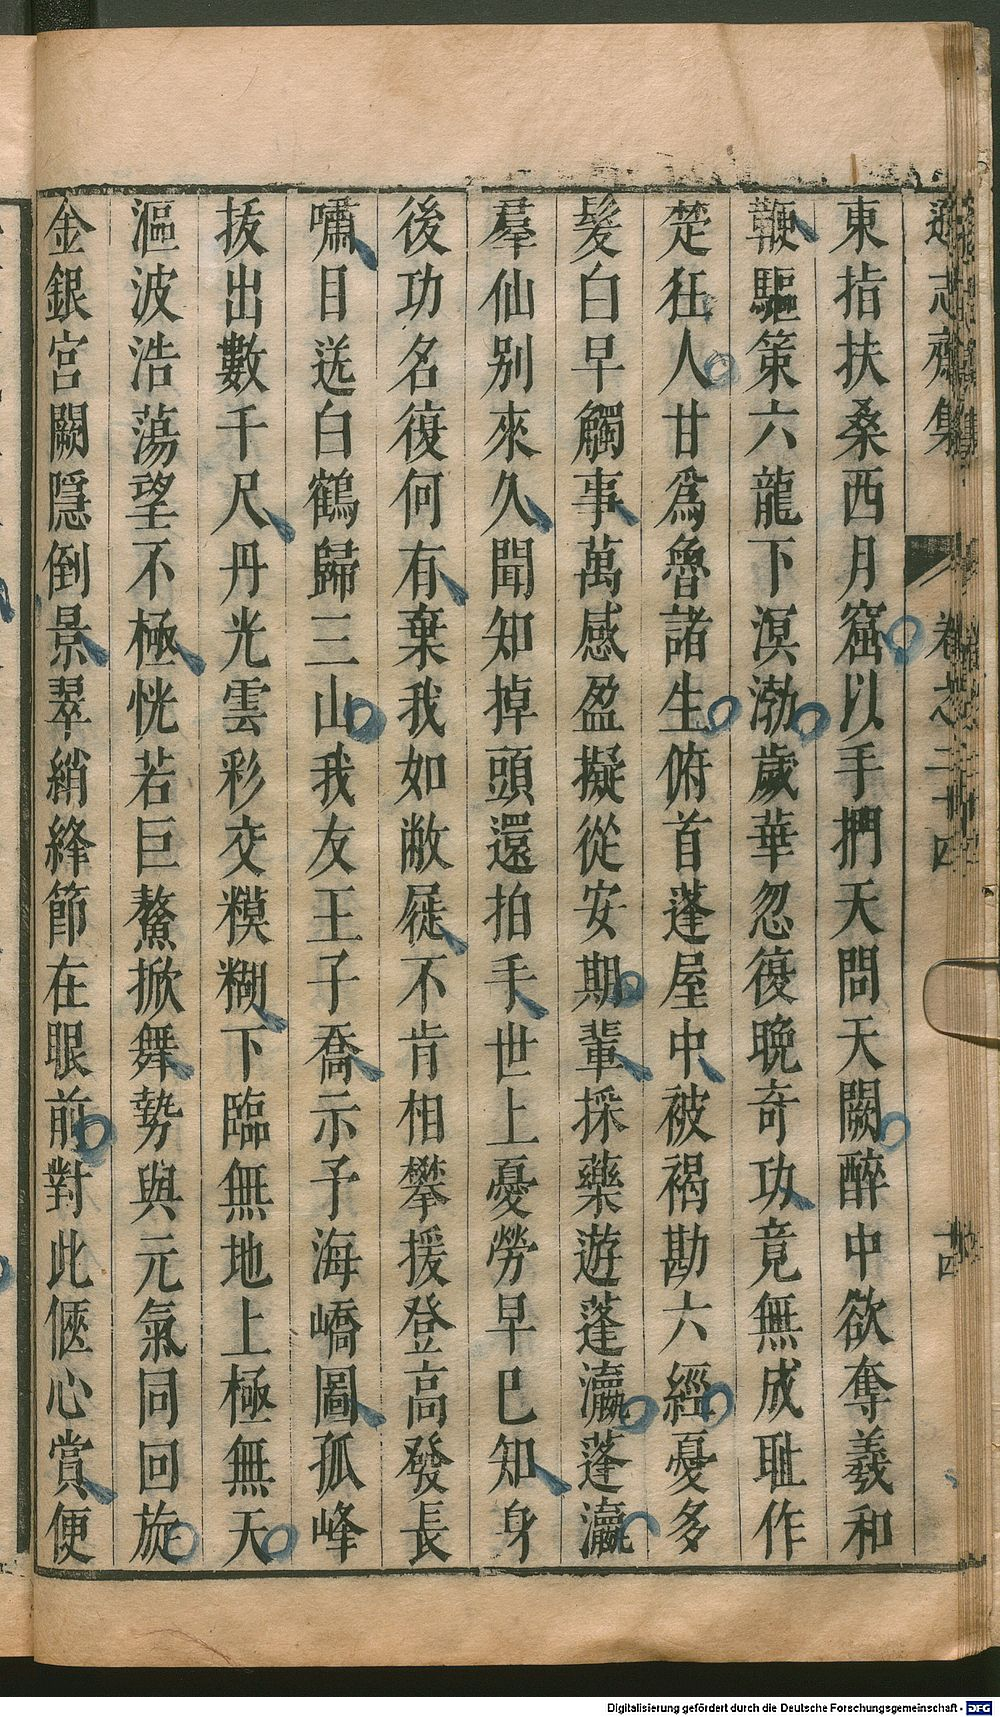 遜志齋集 卷之二十四 十四
東指扶桑西月窟以手捫天問天闕醉中欲奪羲和
鞭驅策六龍下溟渤歲華忽復晚奇功竟無成耻作
楚狂人甘爲魯諸生俯首蓬屋中被褐勘六經憂多
髮白早觸事萬感盈擬從安期輩採藥遊蓬瀛蓬瀛
羣仙别來久聞知掉頭還拍手世上憂勞早巳知身
後功名復何有棄我如敝屣不肯相攀援登高發長
嘯目送白鶴歸三山我友王子喬示予海嶠圖孤峰
拔出數千尺丹光雲彩交糢糊下臨無地上極無天
漚波浩蕩望不極恍若巨鰲掀舞勢與元氣同回旋
金銀宮闕隱倒景翠綃絳節在眼前對此愜心賞便
Digitalisierung gefördert durch die Deutsche Forschungsgemeinschaft - DFG